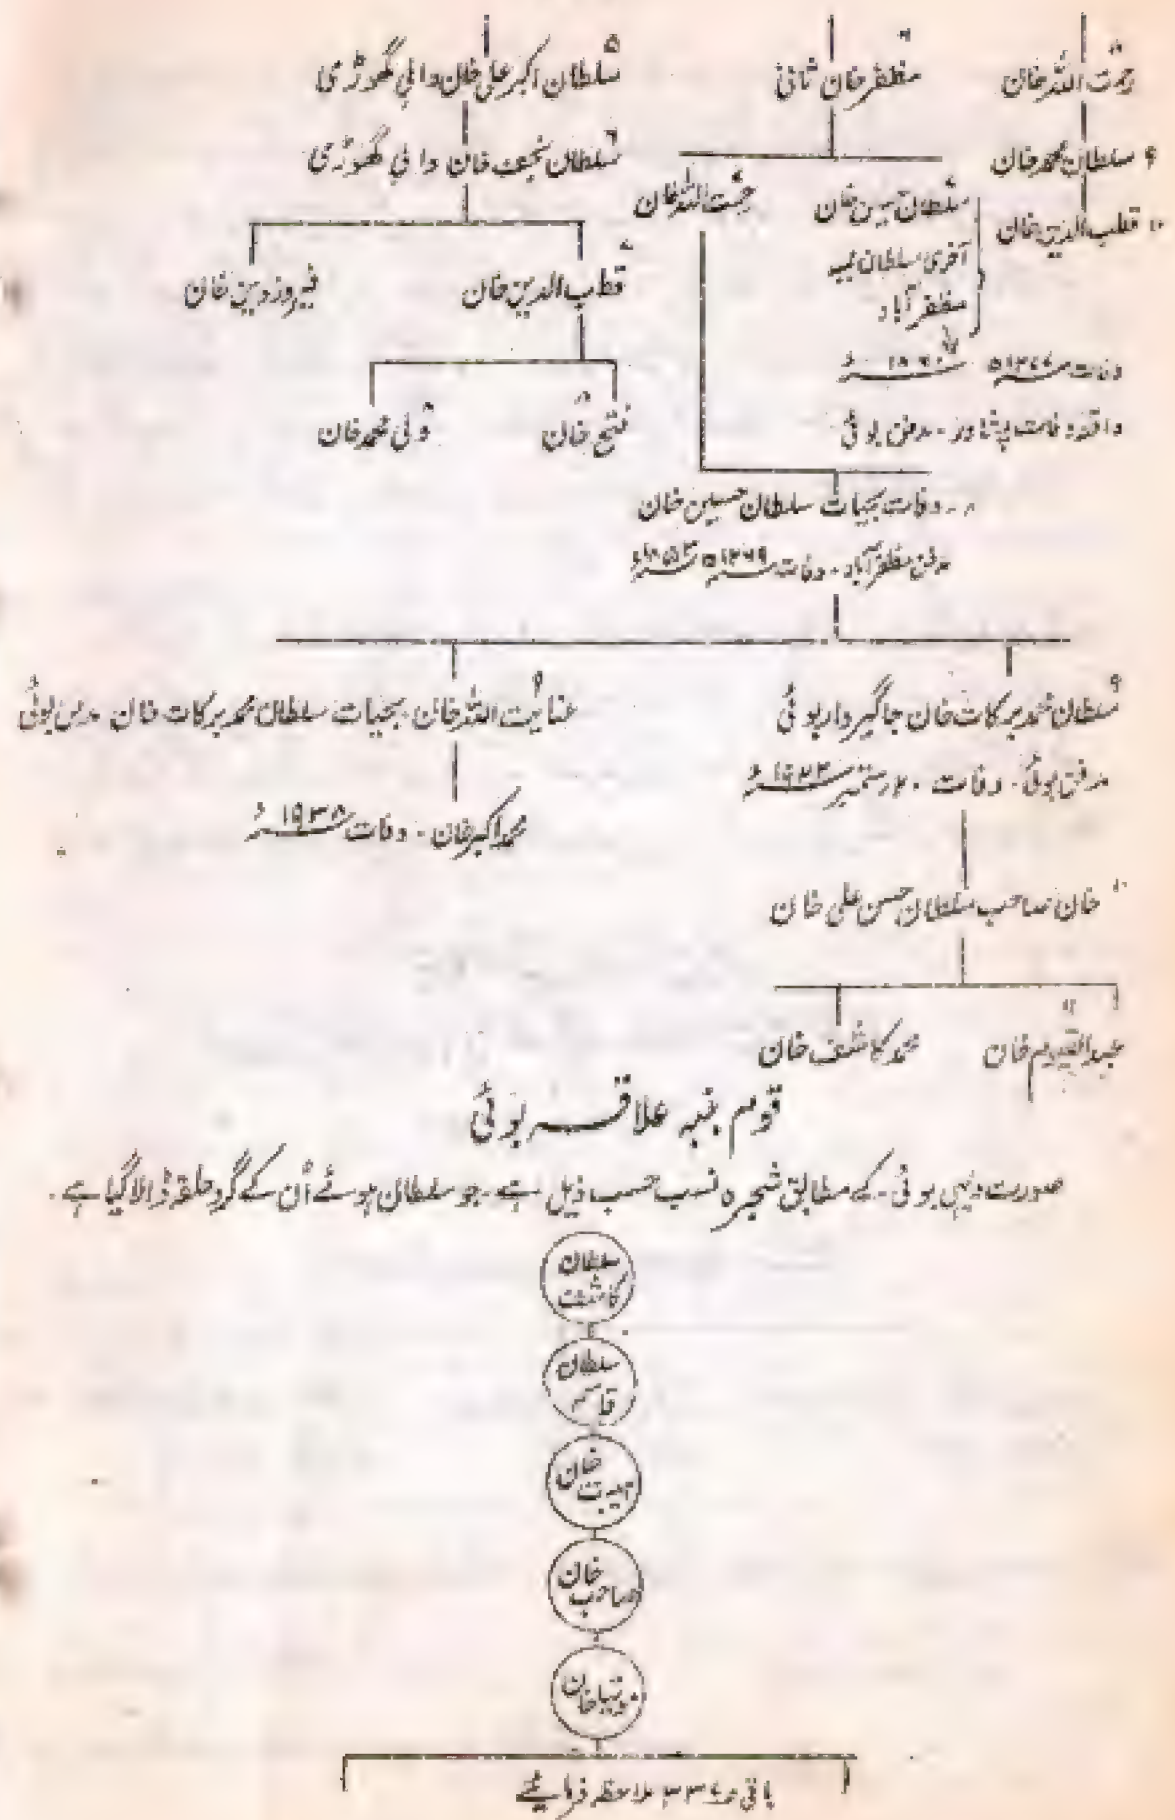 رحمت اللہ خان
۹ سلطان محمد خان
۱۰ قطب الدین خان
مظفر خان ثانی
سلطان حسین خان
آخری سلطان بمبہ
مظفر آباد
وفات ۱۲۷۷ھ ۱۸۶۰ء
وفات پشاور - مدفن بوئی
رحمت اللہ خان
۵ سلطان اکبر علی خان والیٔ گھوڑی
۶ سلطان نجیف خان والیٔ گھوڑی
قطب الدین خان
فیروز دین خان
۸ فتح خان
ولی محمد خان
۸ - وفات بحیات سلطان حسین خان
مدفن مظفر آباد - وفات ۱۲۶۹ھ ۱۸۵۳ء
۹ سلطان محمد برکات خان جاگیردار بوئی
مدفن بوئی - وفات ستمبر ۱۹۳۳ء
۹ عنایت اللہ خان بحیات سلطان محمد برکات خان مدفن بوئی
محمد اکبر خان - وفات ۱۹۳۸ء
۱۰ خان صاحب سلطان حسن علی خان
۱۱ عبدالقیوم خان
محمد کاشف خان
قوم بنبہ علاقہ بوئی
صورت دیہی بوئی - کے مطابق شجرہ نسب حسب ذیل ہے - جو سلطان ہوئے اُن کے گرد حلقہ ڈالا گیا ہے -
سلطان کاشف
سلطان قاسم
ہیبت خان
صاحب خان
خان
باقی ملاحظہ فرمایئے